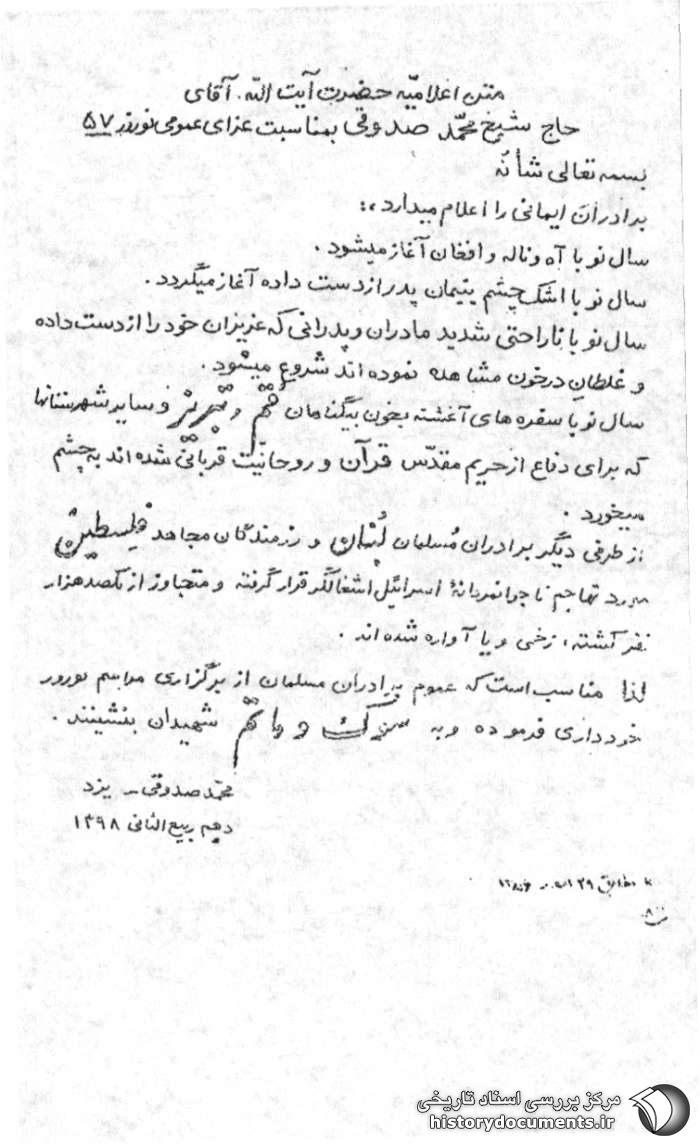 متن اعلامیّه حضرت آیت اللّه . آقای
حاج شیخ محمّد صدوقی بمناسبت عزای عمومی نوروز ۵۷
بسمه تعالی شأنُه
برادران ایمانی را اعلام میدارد ،:
سال نو با آه و ناله و افغان آغاز میشود .
سال نو با اشک چشم یتیمان پدر از دست داده آغاز میگردد .
سال نو با ناراحتی شدید مادران و پدرانی که عزیزان خود را از دست داده
و غلطانِ در خون مشاهده نموده اند شروع میشود .
سال نو با سفره های آغشته بخون بیگناهان قم و تبریز و سایر شهرستانها
که برای دفاع از حریم مقدّس قرآن و روحانیّت قربانی شده اند به چشم
میخورد .
از طرفی دیگر برادران مُسلمان لُبنان و رزمندگان مجاهد فلسطین
مورد تهاجم ناجوانمردانهٔ اسرائیل اشغالگر قرار گرفته و متجاوز از یکصد هزار
نفر کشته ، زخمی و یا آواره شده اند .
لذا مناسب است که عموم برادران مسلمان از برگزاری مراسم نوروز
خودداری فرموده و به سوگ و ماتم شهیدان بنشینند .
محمّد صدوقی ـ یزد
دهم ربیع الثانی ۱۳۹۸
مطابق ۲۹
مرکز بررسی اسناد تاریخی
historydocuments.ir